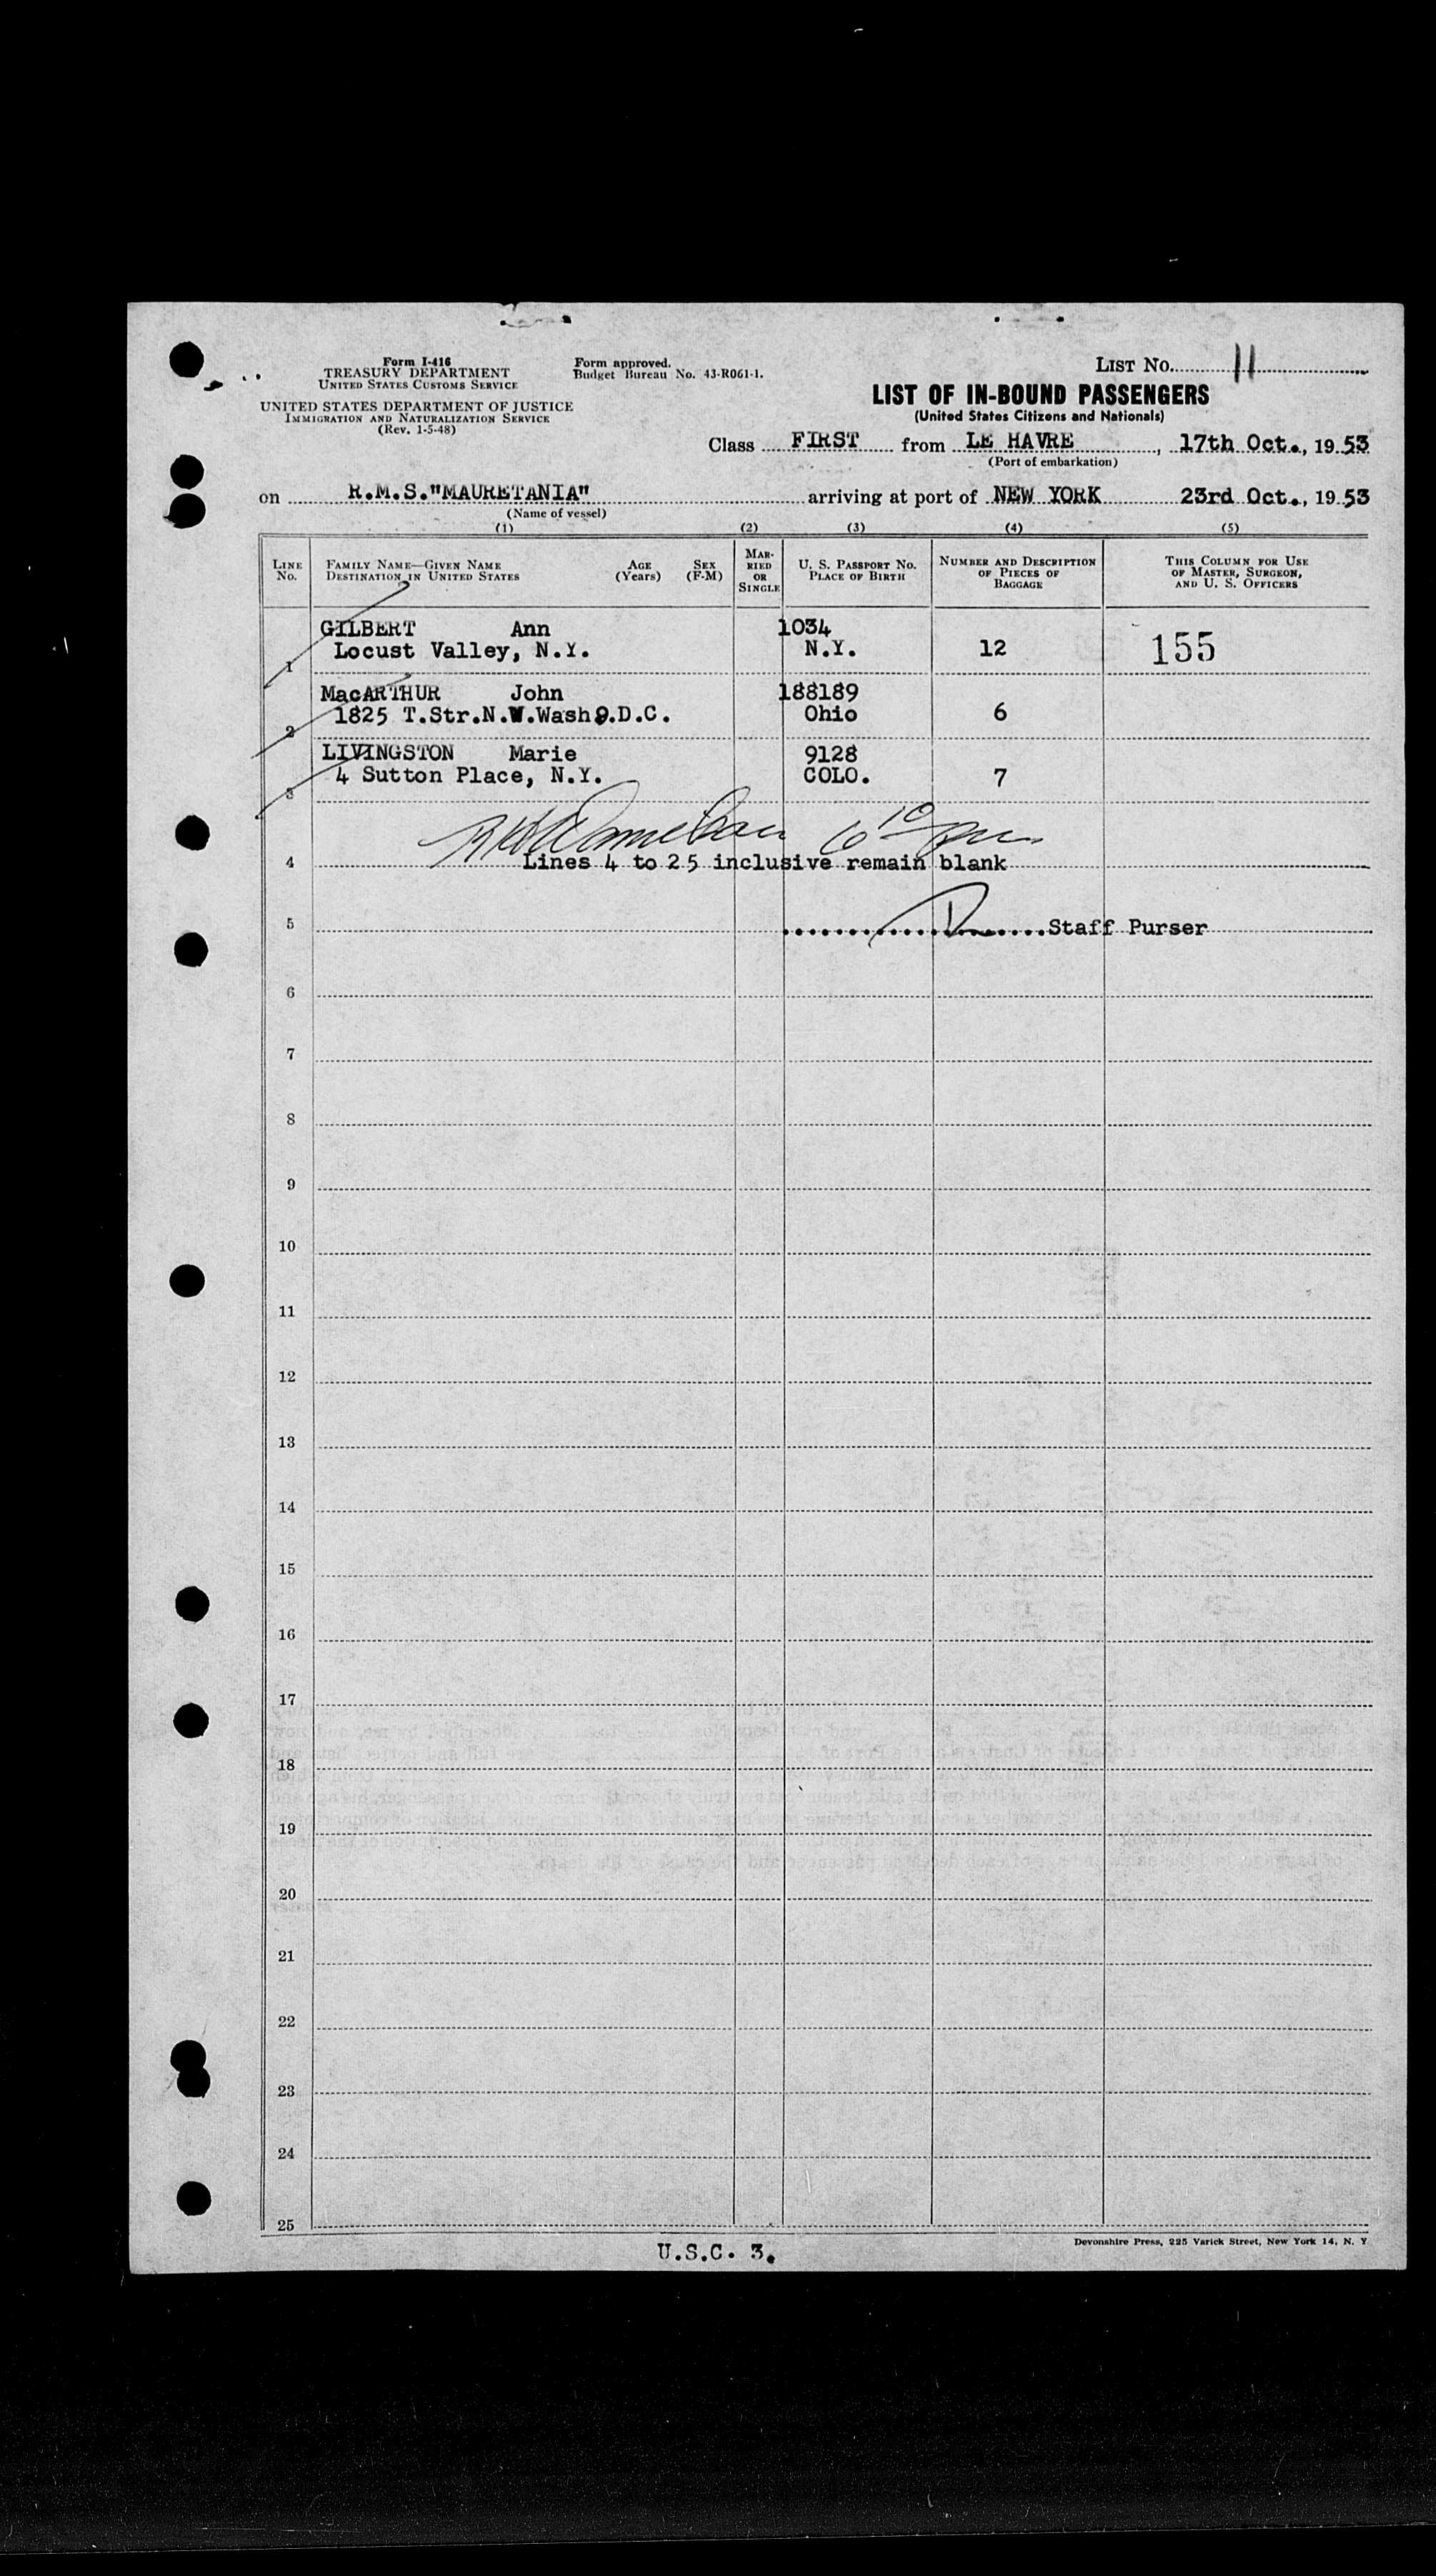 Form I-416
TREASURY DEPARTMENT
UNITED STATES CUSTOMS SERVICE
UNITED STATES DEPARTMENT OF JUSTICE
IMMIGRATION AND NATURALIZATION SERVICE
(Rev. 1-5-48)
Form approved.
Budget Bureau No. 43-R061-1.
LIST NO. 11
LIST OF IN-BOUND PASSENGERS
(United States Citizens and Nationals)
Class FIRST from LE HAVRE, 17th Oct., 1953
(Port of embarkation)
on R.M.S."MAURETANIA" arriving at port of NEW YORK 23rd Oct., 1953
(Name of vessel)
(1) (2) (3) (4) (5)
LINE NO. FAMILY NAME—GIVEN NAME DESTINATION IN UNITED STATES AGE (Years) SEX (F-M) MARRIED OR SINGLE U. S. PASSPORT NO. PLACE OF BIRTH NUMBER AND DESCRIPTION OF PIECES OF BAGGAGE THIS COLUMN FOR USE OF MASTER, SURGEON, AND U. S. OFFICERS
GILBERT Ann 1034
1 Locust Valley, N.Y. N.Y. 12 155
MacARTHUR John 188189
2 1825 T.Str.N.W.Wash.D.C. Ohio 6
LIVINGSTON Marie 9128
3 4 Sutton Place, N.Y. COLO. 7
6 10 pm
4 Lines 4 to 25 inclusive remain blank
5 Staff Purser
6
7
8
9
10
11
12
13
14
15
16
17
18
19
20
21
22
23
24
25
U.S.C. 3.
Devonshire Press, 225 Varick Street, New York 14, N. Y